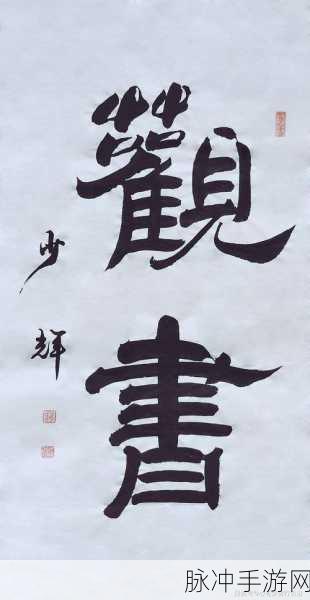 觀書
少輝
脉冲手游网